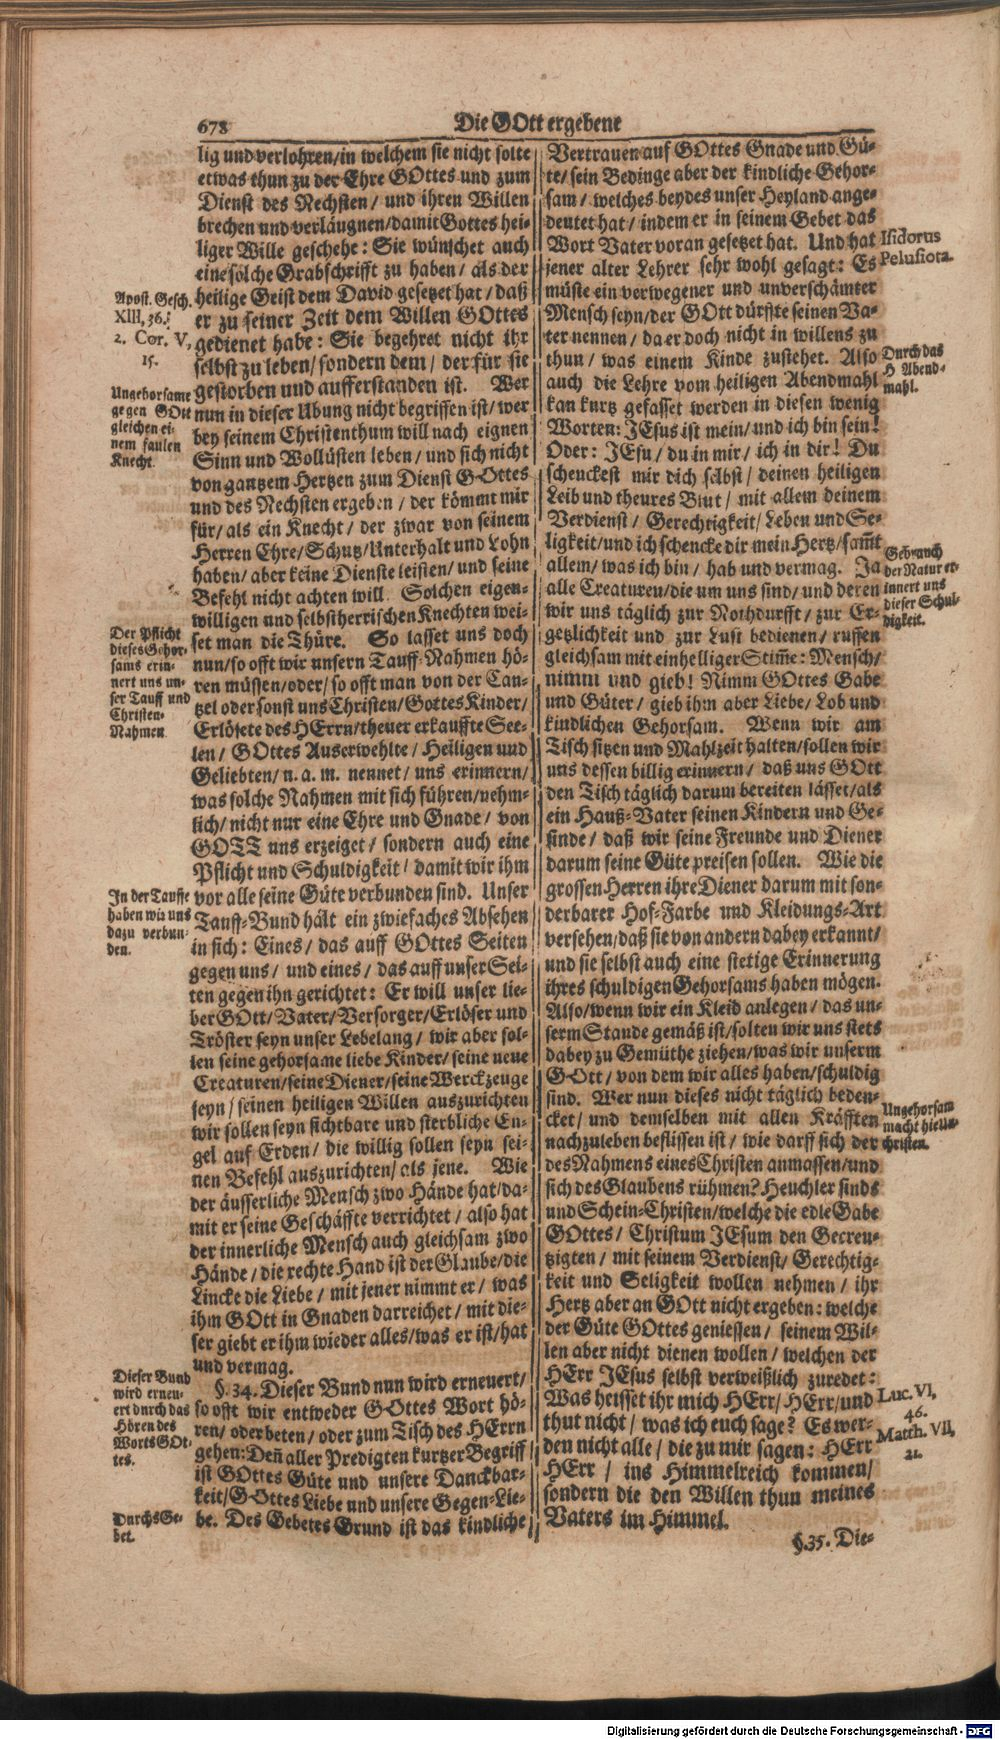 678
Die GOtt ergebene
lig und verlohren/in welchem sie nicht solte
etwas thun zu der Ehre GOttes und zum
Dienst des Nechsten/ und ihren Willen
brechen und verläugnen/damit Gottes hei-
liger Wille geschehe: Sie wünschet auch
eine solche Grabschrifft zu haben/ als der
heilige Geist dem David gesetzet hat/ daß
er zu seiner Zeit dem Willen GOttes
gedienet habe: Sie begehret nicht ihr
selbst zu leben/sondern dem/ der für sie
gestorben und aufferstanden ist. Wer
nun in dieser Ubung nicht begriffen ist/wer
bey seinem Christenthum will nach eignen
Sinn und Wollüsten leben/ und sich nicht
von gantzem Hertzen zum Dienst GOttes
und des Nechsten ergeben/ der kömmt mir
für/ als ein Knecht/ der zwar von seinem
Herren Ehre/Schutz/Unterhalt und Lohn
haben/ aber keine Dienste leisten/ und seine
Befehl nicht achten will. Solchen eigen-
willigen und selbstherrischen Knechten wei-
set man die Thüre. So lasset uns doch
nun/so offt wir unsern Tauff-Nahmen hö-
ren müssen/oder/ so offt man von der Can-
tzel oder sonst uns Christen/Gottes Kinder/
Erlösete des HErrn/theuer erkauffte See-
len/ GOttes Auserwehlte/ Heiligen und
Geliebten/ n. a. m. nennet/ uns erinnern/
was solche Nahmen mit sich führen/nehm-
lich/ nicht nur eine Ehre und Gnade/ von
GOTT uns erzeiget/ sondern auch eine
Pflicht und Schuldigkeit/ damit wir ihm
vor alle seine Güte verbunden sind. Unser
Tauff-Bund hält ein zwiefaches Absehen
in sich: Eines/ das auff GOttes Seiten
gegen uns/ und eines/ das auff unser Sei-
ten gegen ihn gerichtet: Er will unser lie-
ber GOtt/ Vater/Versorger/Erlöser und
Tröster seyn unser Lebelang/ wir aber sol-
len seine gehorsame liebe Kinder/seine neue
Creaturen/seine Diener/seine Werckzeuge
seyn/ seinen heiligen Willen auszurichten
wir sollen seyn sichtbare und sterbliche En-
gel auf Erden/ die willig sollen seyn sei-
nen Befehl auszurichten/ als jene. Wie
der äusserliche Mensch zwo Hände hat/da-
mit er seine Geschäffte verrichtet/ also hat
der innerliche Mensch auch gleichsam zwo
Hände/ die rechte Hand ist der Glaube/die
Lincke die Liebe/ mit jener nimmt er/ was
ihm GOtt in Gnaden darreichet/ mit die-
ser giebt er ihm wieder alles/was er ist/hat
und vermag.
§. 34. Dieser Bund nun wird erneuert/
so offt wir entweder GOttes Wort hö-
ren/ oder beten/ oder zum Tisch des HErrn
gehen: Deñ aller Predigten kurtzer Begriff
ist GOttes Güte und unsere Danckbar-
keit/GOttes Liebe und unsere Gegen-Lie-
be. Des Gebetes Grund ist das kindliche
Apost. Gesch.
XIII, 36.
2. Cor. V,
15.
Ungehorsame
gegen GOtt
gleichen ei-
nem faulen
Knecht.
Der Pflicht
dieses Gehor-
sams erin-
nert uns un-
ser Tauff und
Christen-
Nahmen
In der Tauffe
haben wir uns
dazu verbun-
den.
Dieser Bund
wird erneu-
ert durch das
Hören des
Worts GOt-
tes.
Durchs Ge-
bet.
Vertrauen auf GOttes Gnade und Gü-
te/ sein Bedinge aber der kindliche Gehor-
sam/ welches beydes unser Heyland ange-
deutet hat/ indem er in seinem Gebet das
Wort Vater voran gesetzet hat. Und hat
jener alter Lehrer sehr wohl gesagt: Es
müste ein verwegener und unverschämter
Mensch seyn/der GOtt dürffte seinen Va-
ter nennen/ da er doch nicht in willens zu
thun/ was einem Kinde zustehet. Also
auch die Lehre vom heiligen Abendmahl
kan kurtz gefasset werden in diesen wenig
Worten: JEsus ist mein/ und ich bin sein!
Oder: JEsu/ du in mir/ ich in dir! Du
schenckest mir dich selbst/ deinen heiligen
Leib und theures Blut/ mit allem deinem
Verdienst/ Gerechtigkeit/ Leben und Se-
ligkeit/und ich schencke dir mein Hertz/sam̃t
allem/ was ich bin/ hab und vermag. Ja
alle Creaturen/die um uns sind/ und deren
wir uns täglich zur Nothdurfft/ zur Er-
getzlichkeit und zur Lust bedienen/ ruffen
gleichsam mit einhelliger Stim̃e: Mensch/
nimm und gieb! Nimm GOttes Gabe
und Güter/ gieb ihm aber Liebe/ Lob und
kindlichen Gehorsam. Wenn wir am
Tisch sitzen und Mahlzeit halten/sollen wir
uns dessen billig erinnern/ daß uns GOtt
den Tisch täglich darum bereiten lässet/als
ein Hauß-Vater seinen Kindern und Ge-
sinde/ daß wir seine Freunde und Diener
darum seine Güte preisen sollen. Wie die
grossen Herren ihre Diener darum mit son-
derbarer Hof-Farbe und Kleidungs-Art
versehen/daß sie von andern dabey erkannt/
und sie selbst auch eine stetige Erinnerung
ihres schuldigen Gehorsams haben mögen.
Also/wenn wir ein Kleid anlegen/ das un-
serm Stande gemäß ist/solten wir uns stets
dabey zu Gemüthe ziehen/was wir unserm
GOtt/ von dem wir alles haben/schuldig
sind. Wer nun dieses nicht täglich beden-
cket/ und demselben mit allen Kräfften
nachzuleben beflissen ist/ wie darff sich der
des Nahmens eines Christen anmassen/und
sich des Glaubens rühmen? Heuchler sinds
und Schein-Christen/welche die edle Gabe
GOttes/ Christum JEsum den Gecreu-
tzigten/ mit seinem Verdienst/ Gerechtig-
keit und Seligkeit wollen nehmen/ ihr
Hertz aber an GOtt nicht ergeben: welche
der Güte GOttes geniessen/ seinem Wil-
len aber nicht dienen wollen/ welchen der
HErr JEsus selbst verweißlich zuredet:
Was heisset ihr mich HErr/ HErr/und
thut nicht/ was ich euch sage? Es wer-
den nicht alle/ die zu mir sagen: HErr
HErr/ ins Himmelreich kommen/
sondern die den Willen thun meines
Vaters im Himmel.
§. 35. Die-
Isidorus
Pelusiota.
Durch das
H Abend-
mahl.
Gebrauch
der Natur er-
innert uns
dieser Schul-
digkeit.
Ungehorsam
macht
christen.
Luc. VI,
46.
Matth. VII,
21.
Digitalisierung gefördert durch die Deutsche Forschungsgemeinschaft - DFG